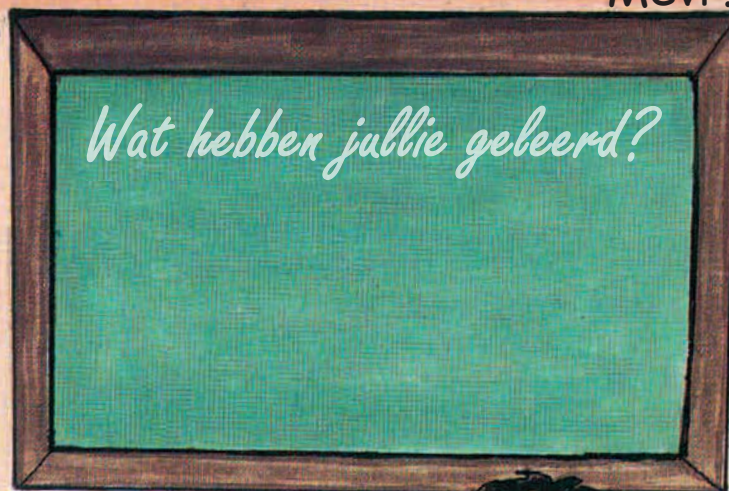 Wat hebben jullie geleerd?